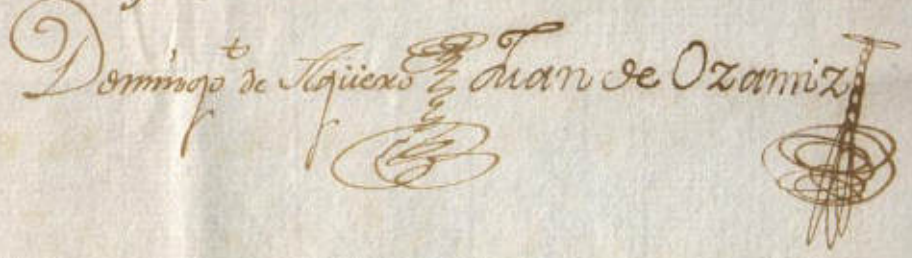 Domingo de Agüero Juan de Ozamiz